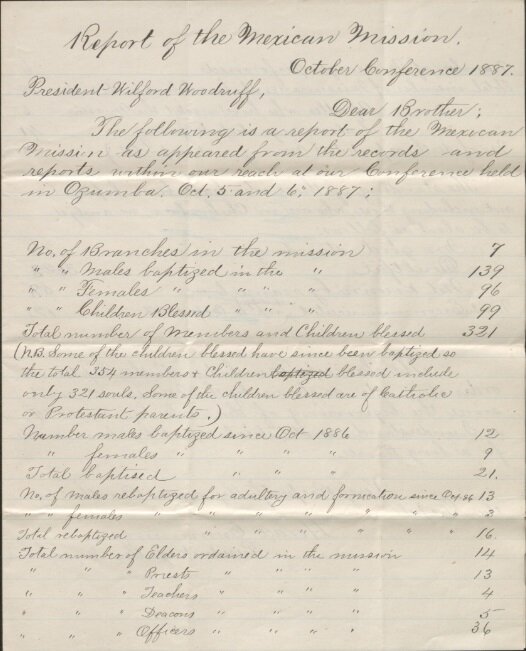 Report of the Mexican Mission.
October Conference 1887.
President Wilford Woodruff,
Dear Brother;
The following is a report of the Mexican
Mission as appeared from the records and
reports within our reach at our Conference held
in Ozumba. Oct. 5 and 6, 1887;
No. of Branches in the mission 7
" " Males baptized in the " 139
" " Females " " " 96
" " Children Blessed " " " 99
Total number of Members and Children blessed 321
(N.B. Some of the children blessed have since been baptized so
the total 334 members & Children baptized blessed include
only 321 souls. Some of the children blessed are of Catholic
or Protestant parents.)
Number males baptized since Oct 1886 12
" females " " " 9
Total baptised " " " 21.
No. of Males rebaptized for adultery and fornication since Oct 86 13
" " females " " " " " " " 3
Total rebaptized " " " " " " " 16.
Total number of Elders ordained in the mission 14
" " " Priests " " " " 13
" " " Teachers " " " " 4
" " " Deacons " " " " 5
" " " Officers " " " " 36